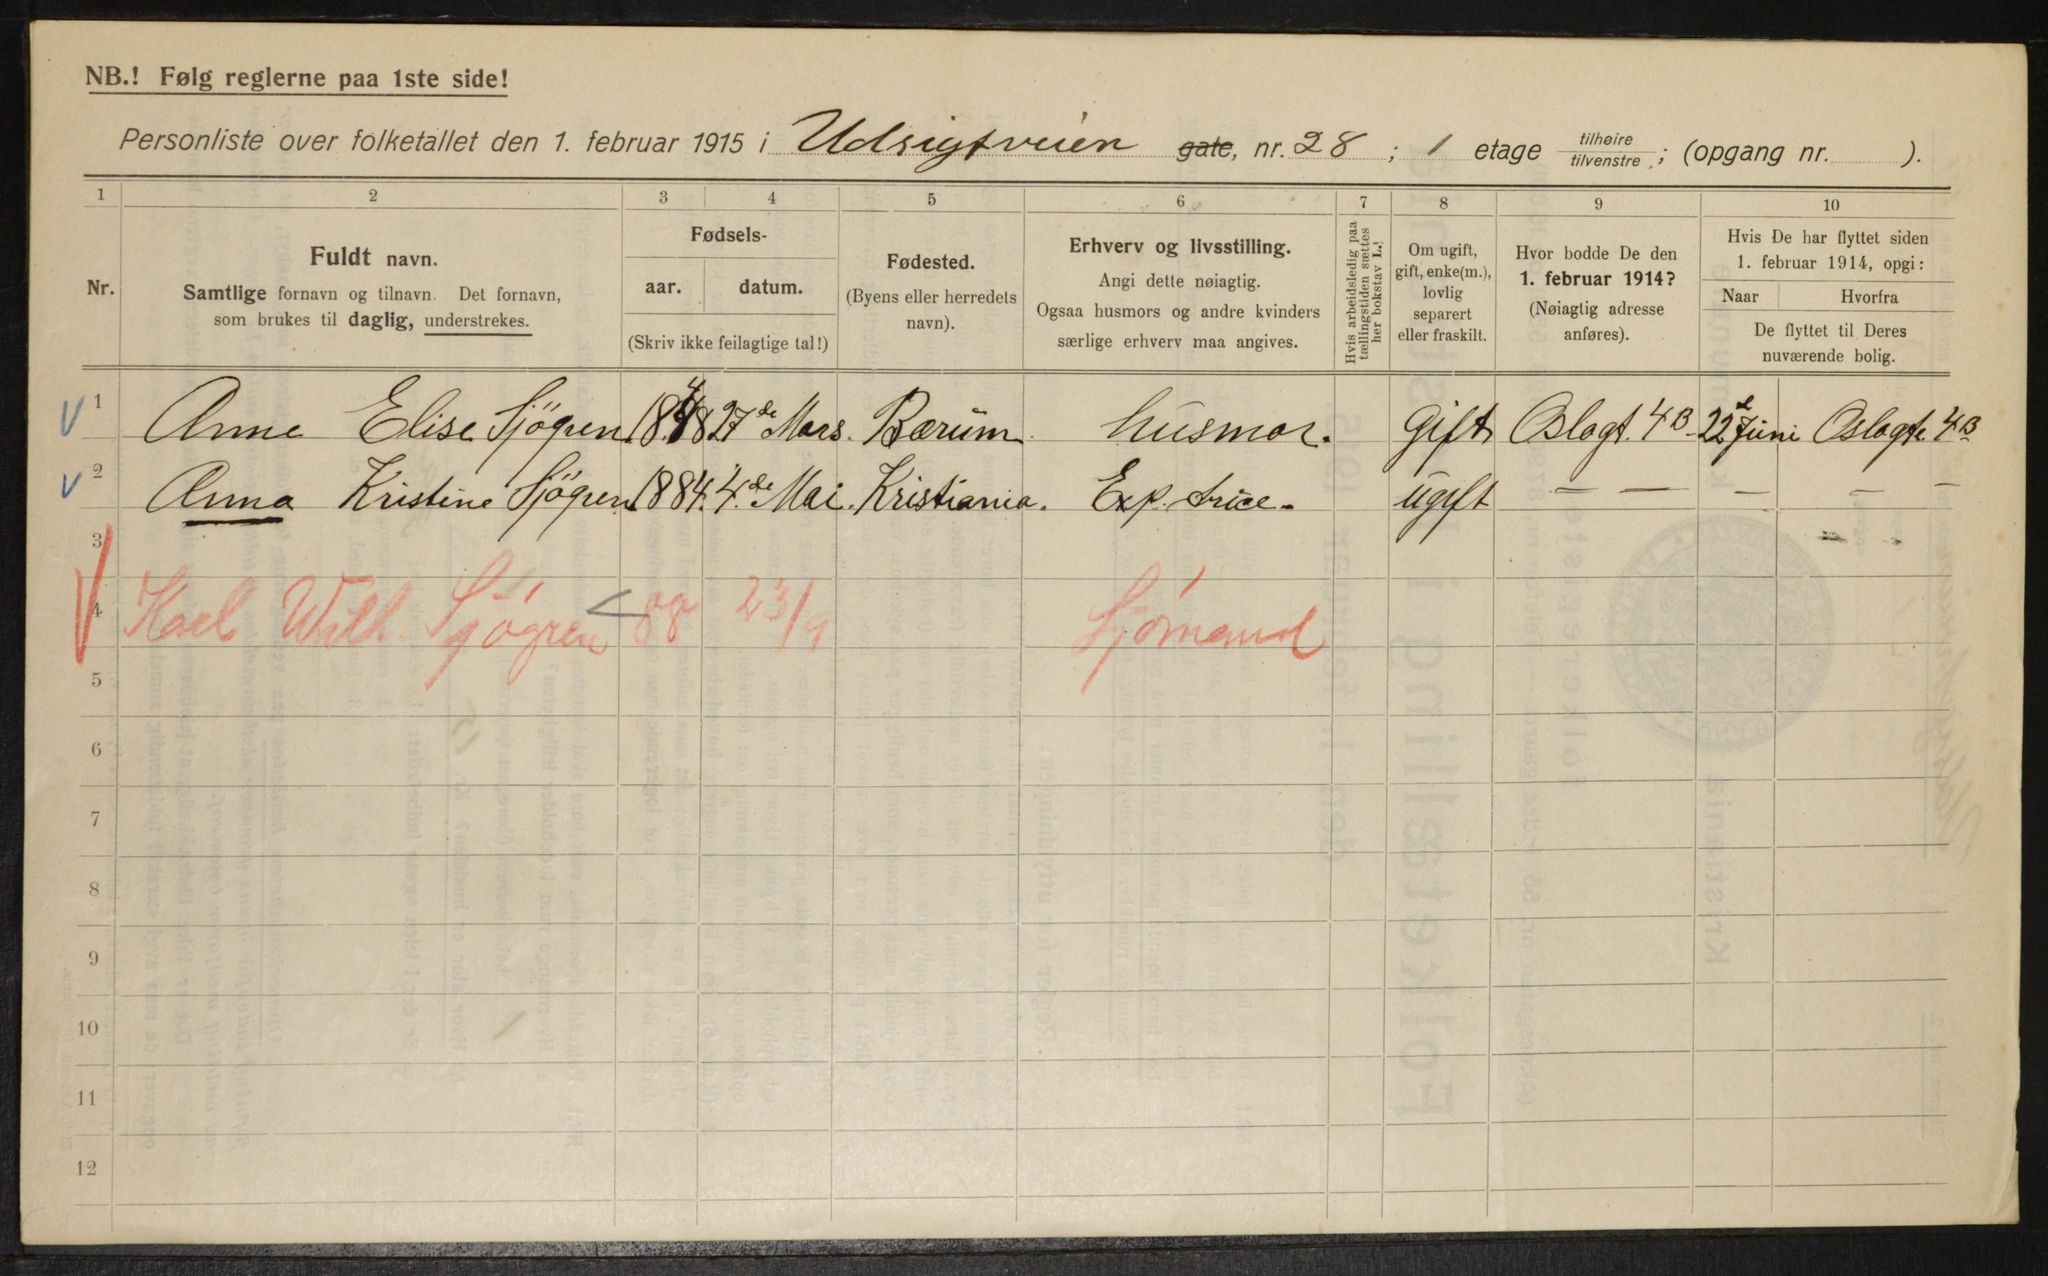 NB.! Følg reglerne paa 1ste side!
Personliste over folketallet den 1. februar 1915 i Udsigtveien gate, nr. 28 ; 1 etage tilhøire tilvenstre ; (opgang nr. ).
1 2 3 4 5 6 7 8 9 10
Nr.
Fuldt navn.
Samtlige fornavn og tilnavn. Det fornavn,
som brukes til daglig, understrekes.
Fødsels-
aar. datum.
(Skriv ikke feilagtige tal!)
Fødested.
(Byens eller herredets
navn).
Erhverv og livsstilling.
Angi dette nøiagtig.
Ogsaa husmors og andre kvinders
særlige erhverv maa angives.
Hvis arbeidsledig paa
tællingstiden sættes
her bokstav L.!
Om ugift,
gift, enke(m.),
lovlig
separert
eller fraskilt.
Hvor bodde De den
1. februar 1914?
(Nøiagtig adresse
anføres).
Hvis De har flyttet siden
1. februar 1914, opgi:
Naar Hvorfra
De flyttet til Deres
nuværende bolig.
1 Anne Elise Sjögren 27de Mars. Bærum husmor. Gift Oslogt. 4B 22de Juni Oslogte 4B
2 Anna Kristine Sjögren 1884. 4de Mai. Kristiania. Exp. trice. ugift — — — — —
3
4 Karl Wilh. Sjögren 23/9 Sjömand
5
6
7
8
9
10
11
12